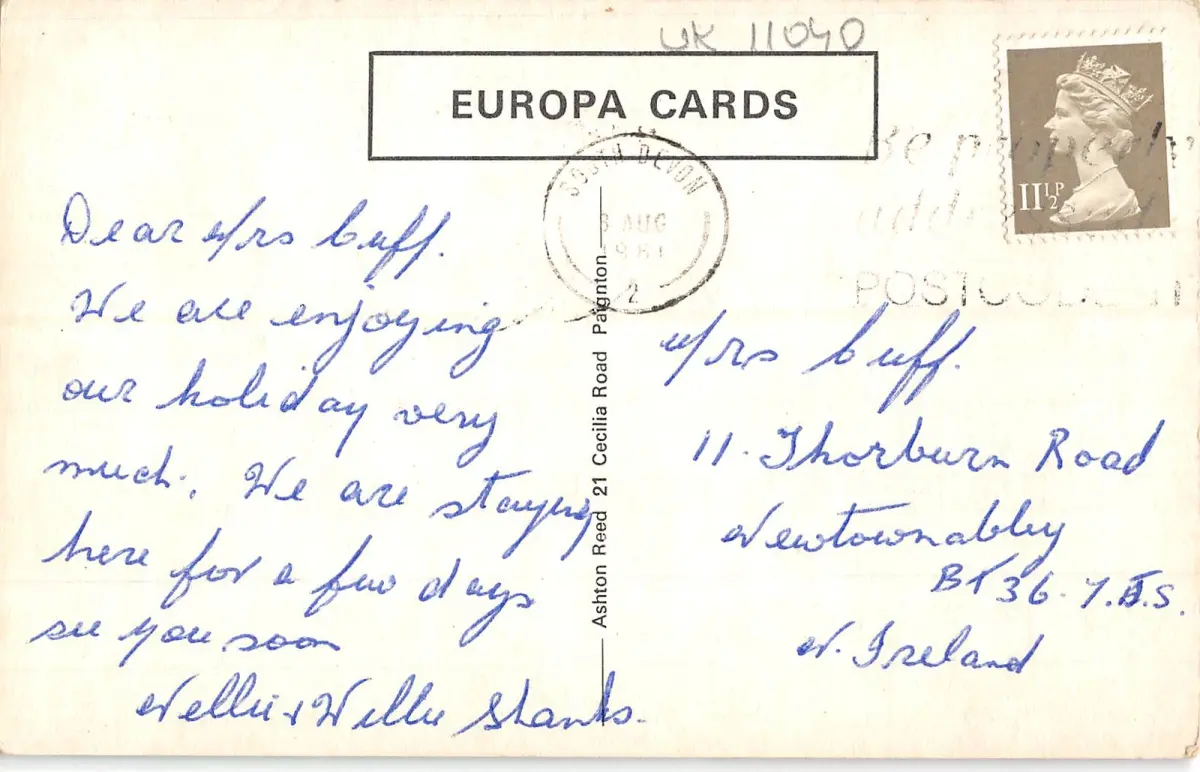 UK 11040
EUROPA CARDS
SOUTH DEVON
AUG
1981
2
11½P
Be properly
POSTCODE IT
Dear Mrs Cuff.
We are enjoying
our holiday very
much. We are staying
here for a few days
see you soon
Nellie & Willie Shanks.
Ashton Reed 21 Cecilia Road Paignton
Mrs Cuff.
11. Thorburn Road
Newtownabbey
BT36. 7.
N. Ireland